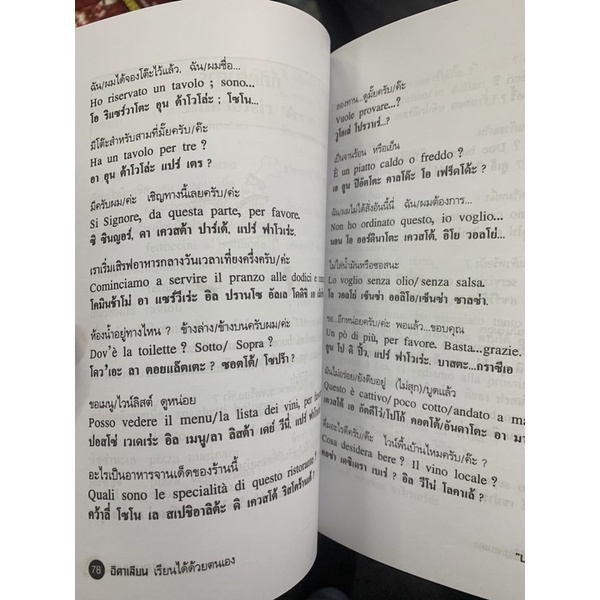 ฉัน/ผมได้จองโต๊ะไว้แล้ว. ฉัน/ผมชื่อ...
Ho riservato un tavolo ; sono...
โอ ริแซร์วาโตะ อุน ต้าโวโล่ะ ; โซโน...
มีโต๊ะสำหรับสามที่มั๊ยครับ/ค๊ะ
Ha un tavolo per tre ?
อา อุน ต้าโวโล่ะ แปร์ เตร ?
มีครับผม/ค่ะ เชิญทางนี้เลยครับ/ค่ะ
Si Signore, da questa parte, per favore.
ซิ ซินญอร์, ดา เควสต้า ปาร์เต้, แปร์ ฟาโวเร่.
เราเริ่มเสิร์ฟอาหารกลางวันเวลาเที่ยงครึ่งครับ/ค่ะ
Cominciamo a servire il pranzo alle dodici e
โคมินช้าโม่ อา แซร์วีเร่ะ อิล ปรานโซ อัลเล โดดิชิ เอ
ห้องน้ำอยู่ทางไหน ? ข้างล่าง/ข้างบนครับผม/ค่ะ
Dov'è la toilette ? Sotto/ Sopra ?
โดว'เอะ ลา ตอยแล็ตเตะ ? ซอตโต้/ โซปร๊า ?
ขอเมนู/ไวน์ลิสต์ ดูหน่อย
Posso vedere il menu/la lista dei vini, per
ปอสโซ่ เวเดเร่ะ อิล เมนู/ลา ลิสต้า เดย์ วีนี่, แปร์
อะไรเป็นอาหารจานเด็ดของร้านนี้
Quali sono le specialità di questo ristorante ?
คว้าลี่ โซโน เล สเปชิอาลิต้ะ ดิ เควสโต้
78 อิตาเลียน เรียนได้ด้วยตนเอง
ลองทาน...ดูมั๊ยครับ/ค๊ะ
Vuole provare...?
วูโอเล่ โปรวาเร่...?
เป็นจานร้อน หรือเย็น
È un piatto caldo o freddo ?
เอ อุน ปิอัตโตะ คาลโด๊ะ โอ เฟร็ดโด๊ะ ?
ฉัน/ผมไม่ได้สั่งอันนี้นี่ ฉัน/ผมต้องการ...
Non ho ordinato questo, io voglio...
นอน โอ ออร์ดินาโต เควสโต้, อิโย วอลโย่...
ไม่ใส่น้ำมันหรือซอสนะ
Lo voglio senza olio/ senza salsa.
โล วอลโย่ เซ้นซ่า ออลิโอ/เซ็นซ่า ซาลซ่า.
ขอ...อีกหน่อยครับ/ค่ะ พอแล้ว...ขอบคุณ
Un pò di più, per favore. Basta...grazie.
อูน โป ดิ ปิ๊ว, แปร์ ฟาโวเร่. บาสตะ...กราซีเอ
มันไม่อร่อย/ยังดิบอยู่ (ไม่สุก)/บูดแล้ว
Questo è cattivo/poco cotto/andato a
เควสโต้ เอ กัตตีโว่/โปโก้ คอตโต้/อันดาโตะ อา
ดื่มอะไรดีครับ/ค๊ะ ไวน์พื้นบ้านไหมครับ/ค๊ะ ?
Cosa desidera bere ? Il vino locale ?
คอซ่า เดซิเดรา เบเร่ ? อิล วีโน่ โลคาเล้ ?